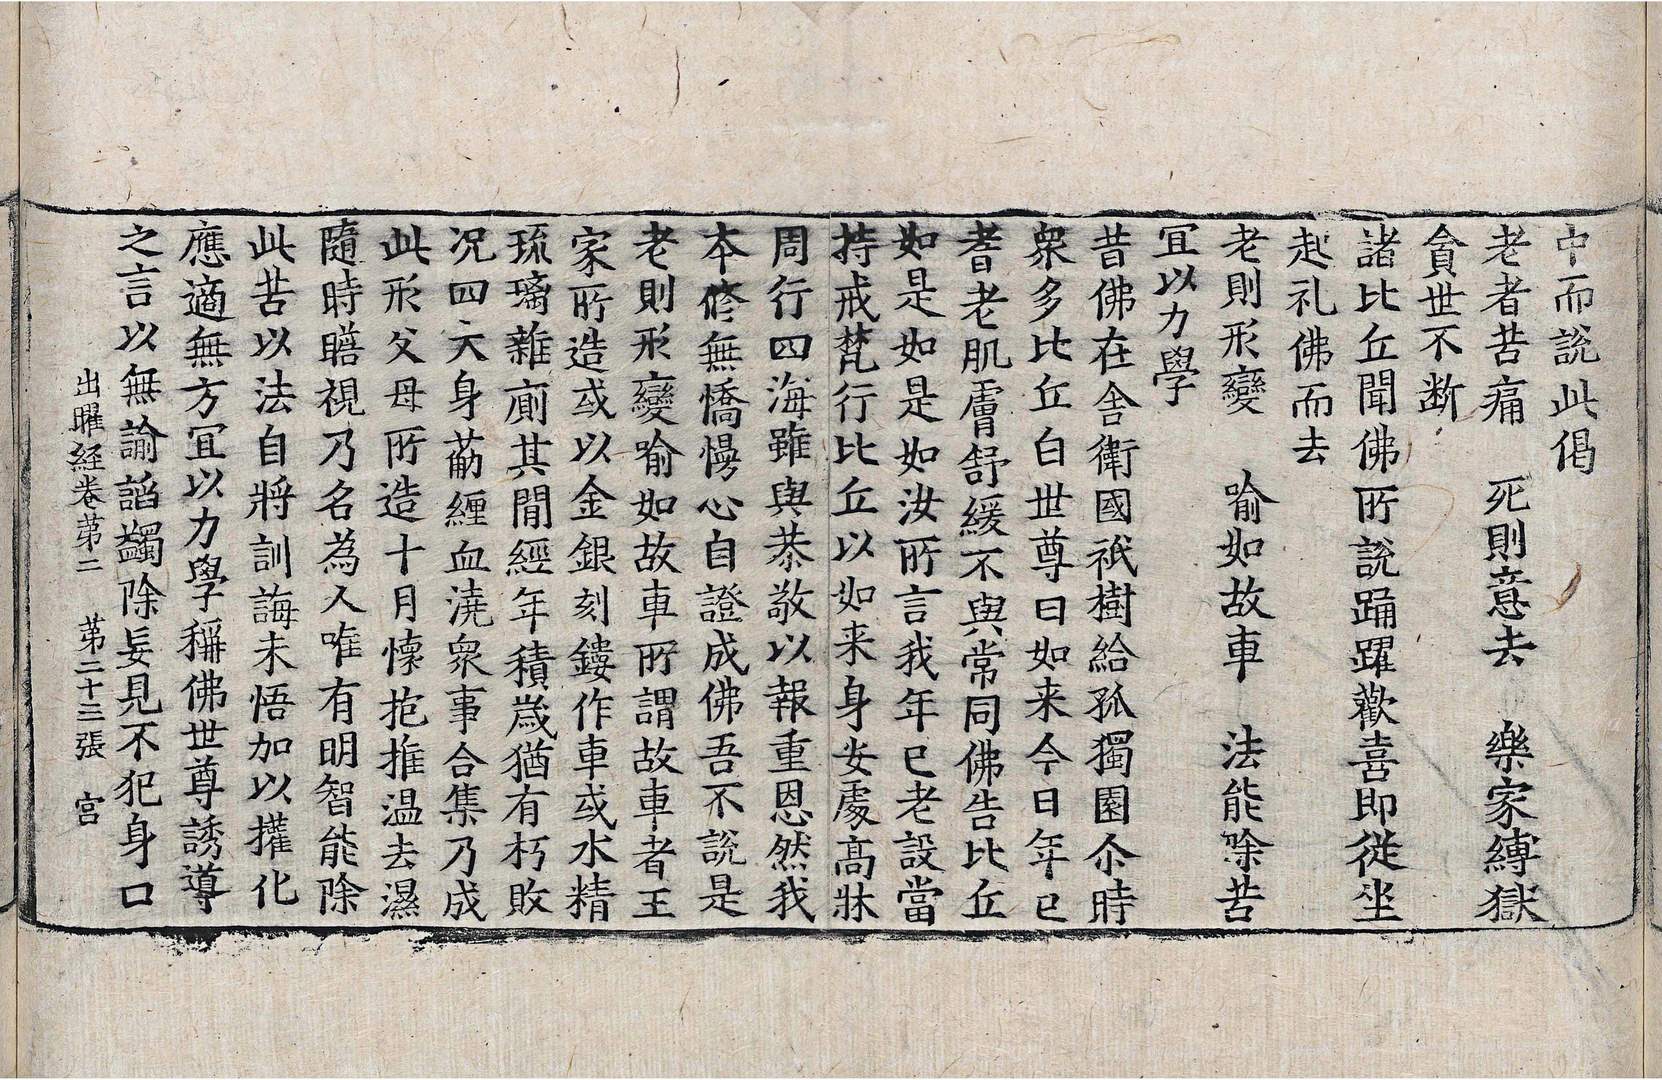 中而說此偈
老者苦痛　死則意去　樂家縛獄
貪世不断
諸比丘聞佛所說踊躍歡喜即從坐
起礼佛而去
老則形變　喻如故車　法能除苦
冝以力學
昔佛在舍衛國祇樹給孤獨園尒時
衆多比丘白世尊曰如来今日年已
耆老肌膚舒緩不與常同佛告比丘
如是如是如汝所言我年已老設當
持戒梵行比丘以如来身安處高牀
周行四海雖與恭敬以報重恩然我
本修無憍慢心自證成佛吾不說是
老則形變喻如故車所謂故車者王
家所造或以金銀刻鏤作車或水精
琉璃雜廁其間經年積歲猶有朽敗
况四大身荕纏血澆衆事合集乃成
此形父母所造十月懷抱推温去濕
隨時瞻視乃名為人唯有明智能除
此苦以法自將訓誨未悟加以權化
應適無方冝以力學稱佛世尊誘導
之言以無諭諂蠲除妄見不犯身口
出曜経卷苐二　苐二十三張　宮